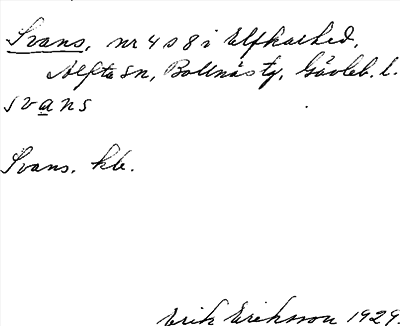 Svans, nr 4 o 8 i Elfkarhed,
Alfta sn, Bollnäs tg, Gävleb. l.
svans
Svans. kb.
Erik Eriksson 1929.